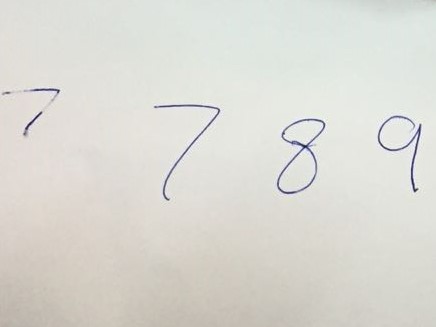 7 7 8 9